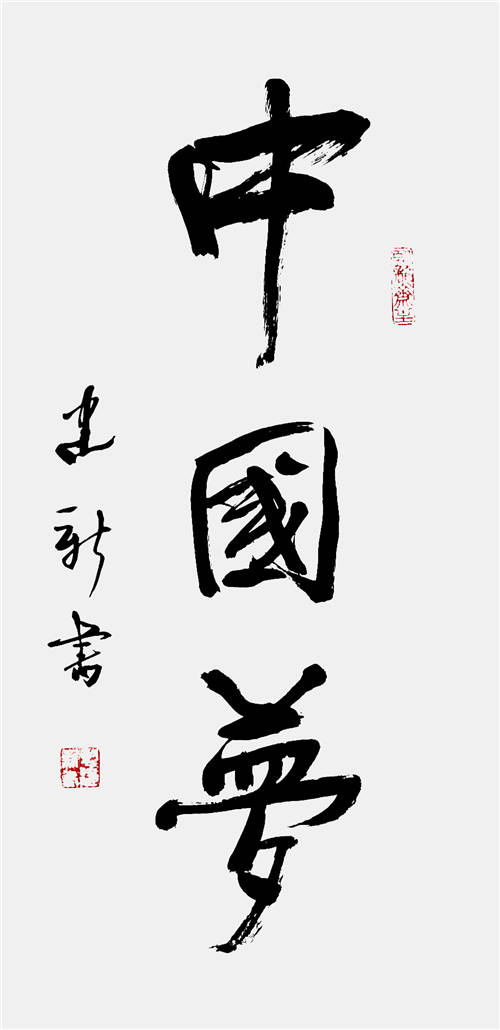 中國夢
建新書